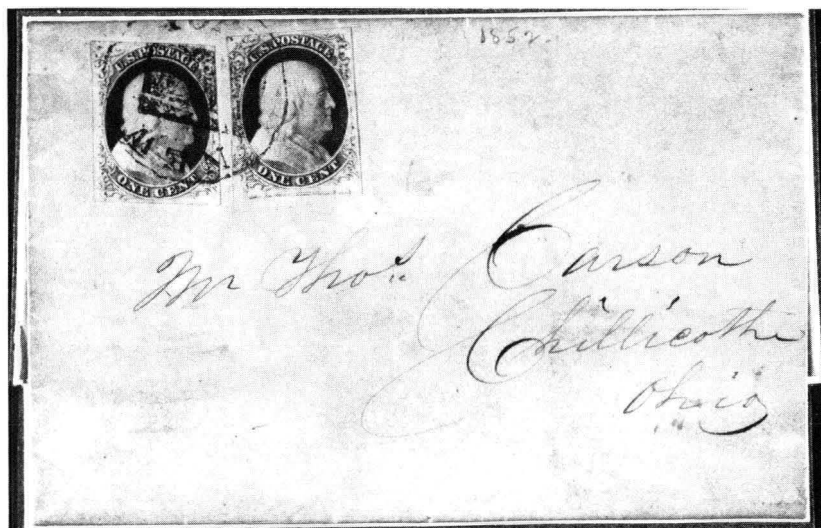 1852.
U.S. POSTAGE
ONE CENT
U.S. POSTAGE
ONE CENT
Mr Thos. Carson
Chillicothe
Ohio